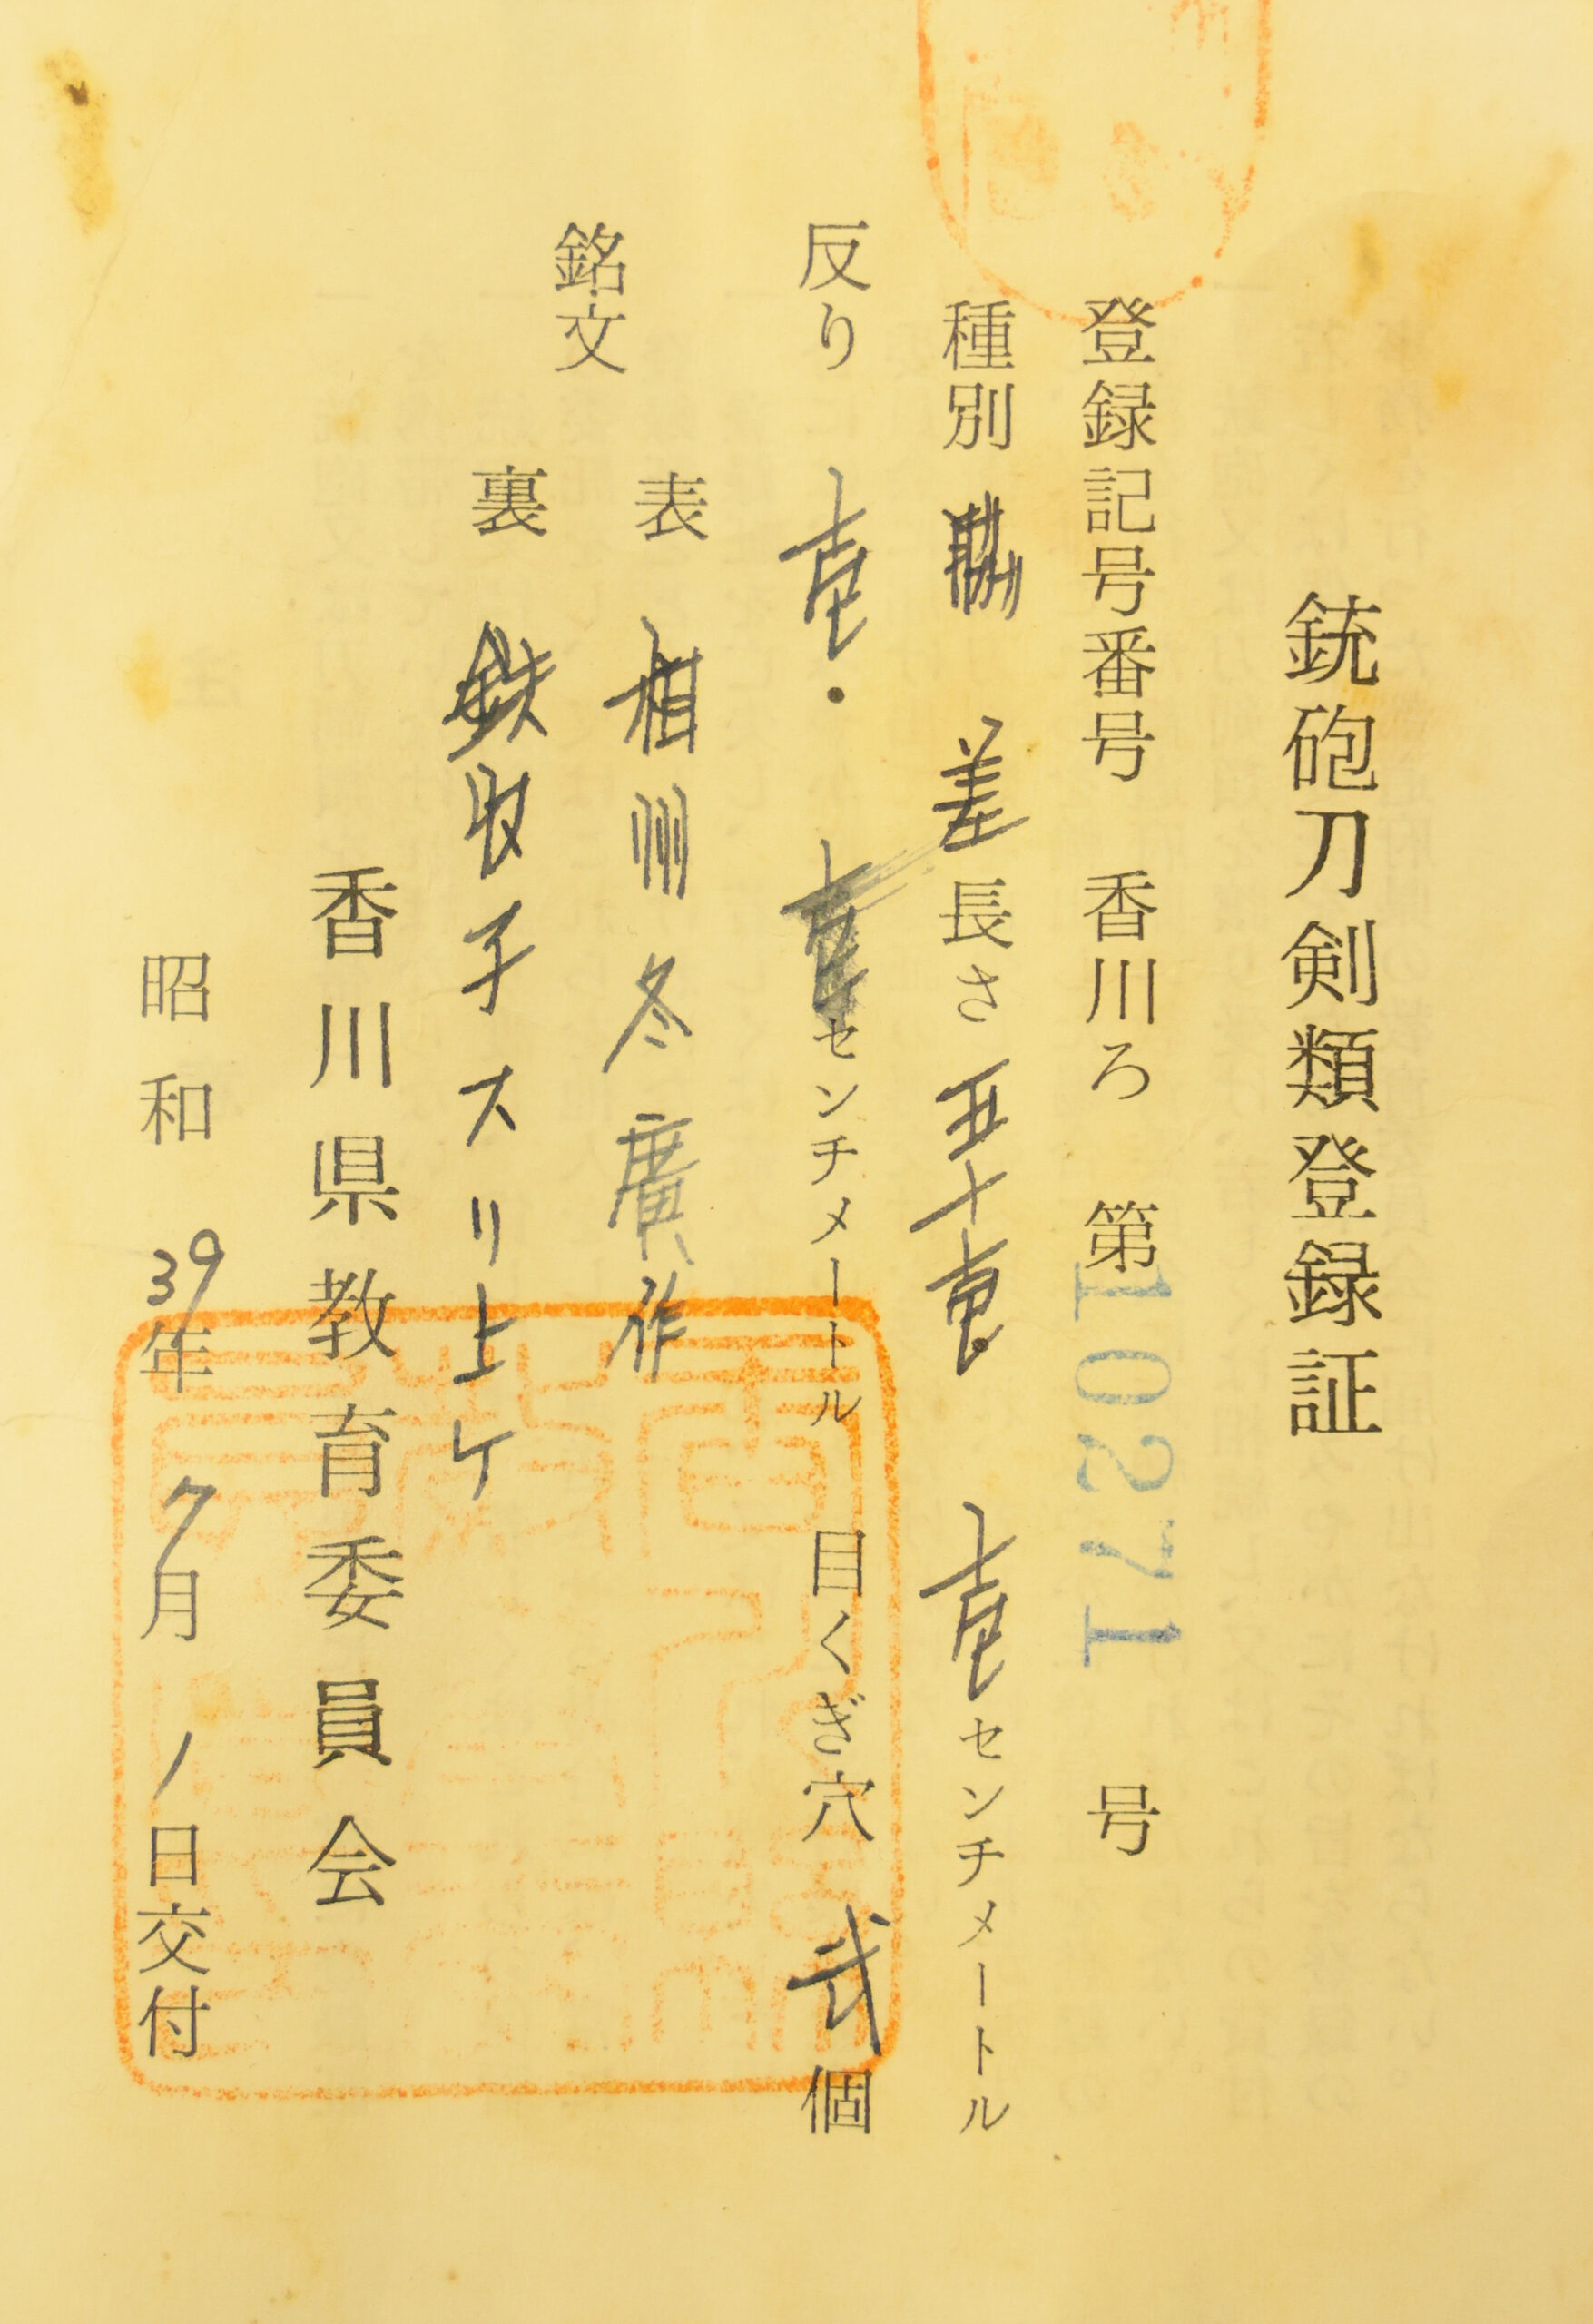 銃砲刀剣類登録証
登録記号番号 香川ろ 第10271号
種別 脇差 長さ 五十壱・壱センチメートル
反り 壱・壱センチメートル 目くぎ穴 弐個
銘文
表 相州 冬廣作
裏 スリ上ケ
香川県教育委員会
昭和39年7月1日交付